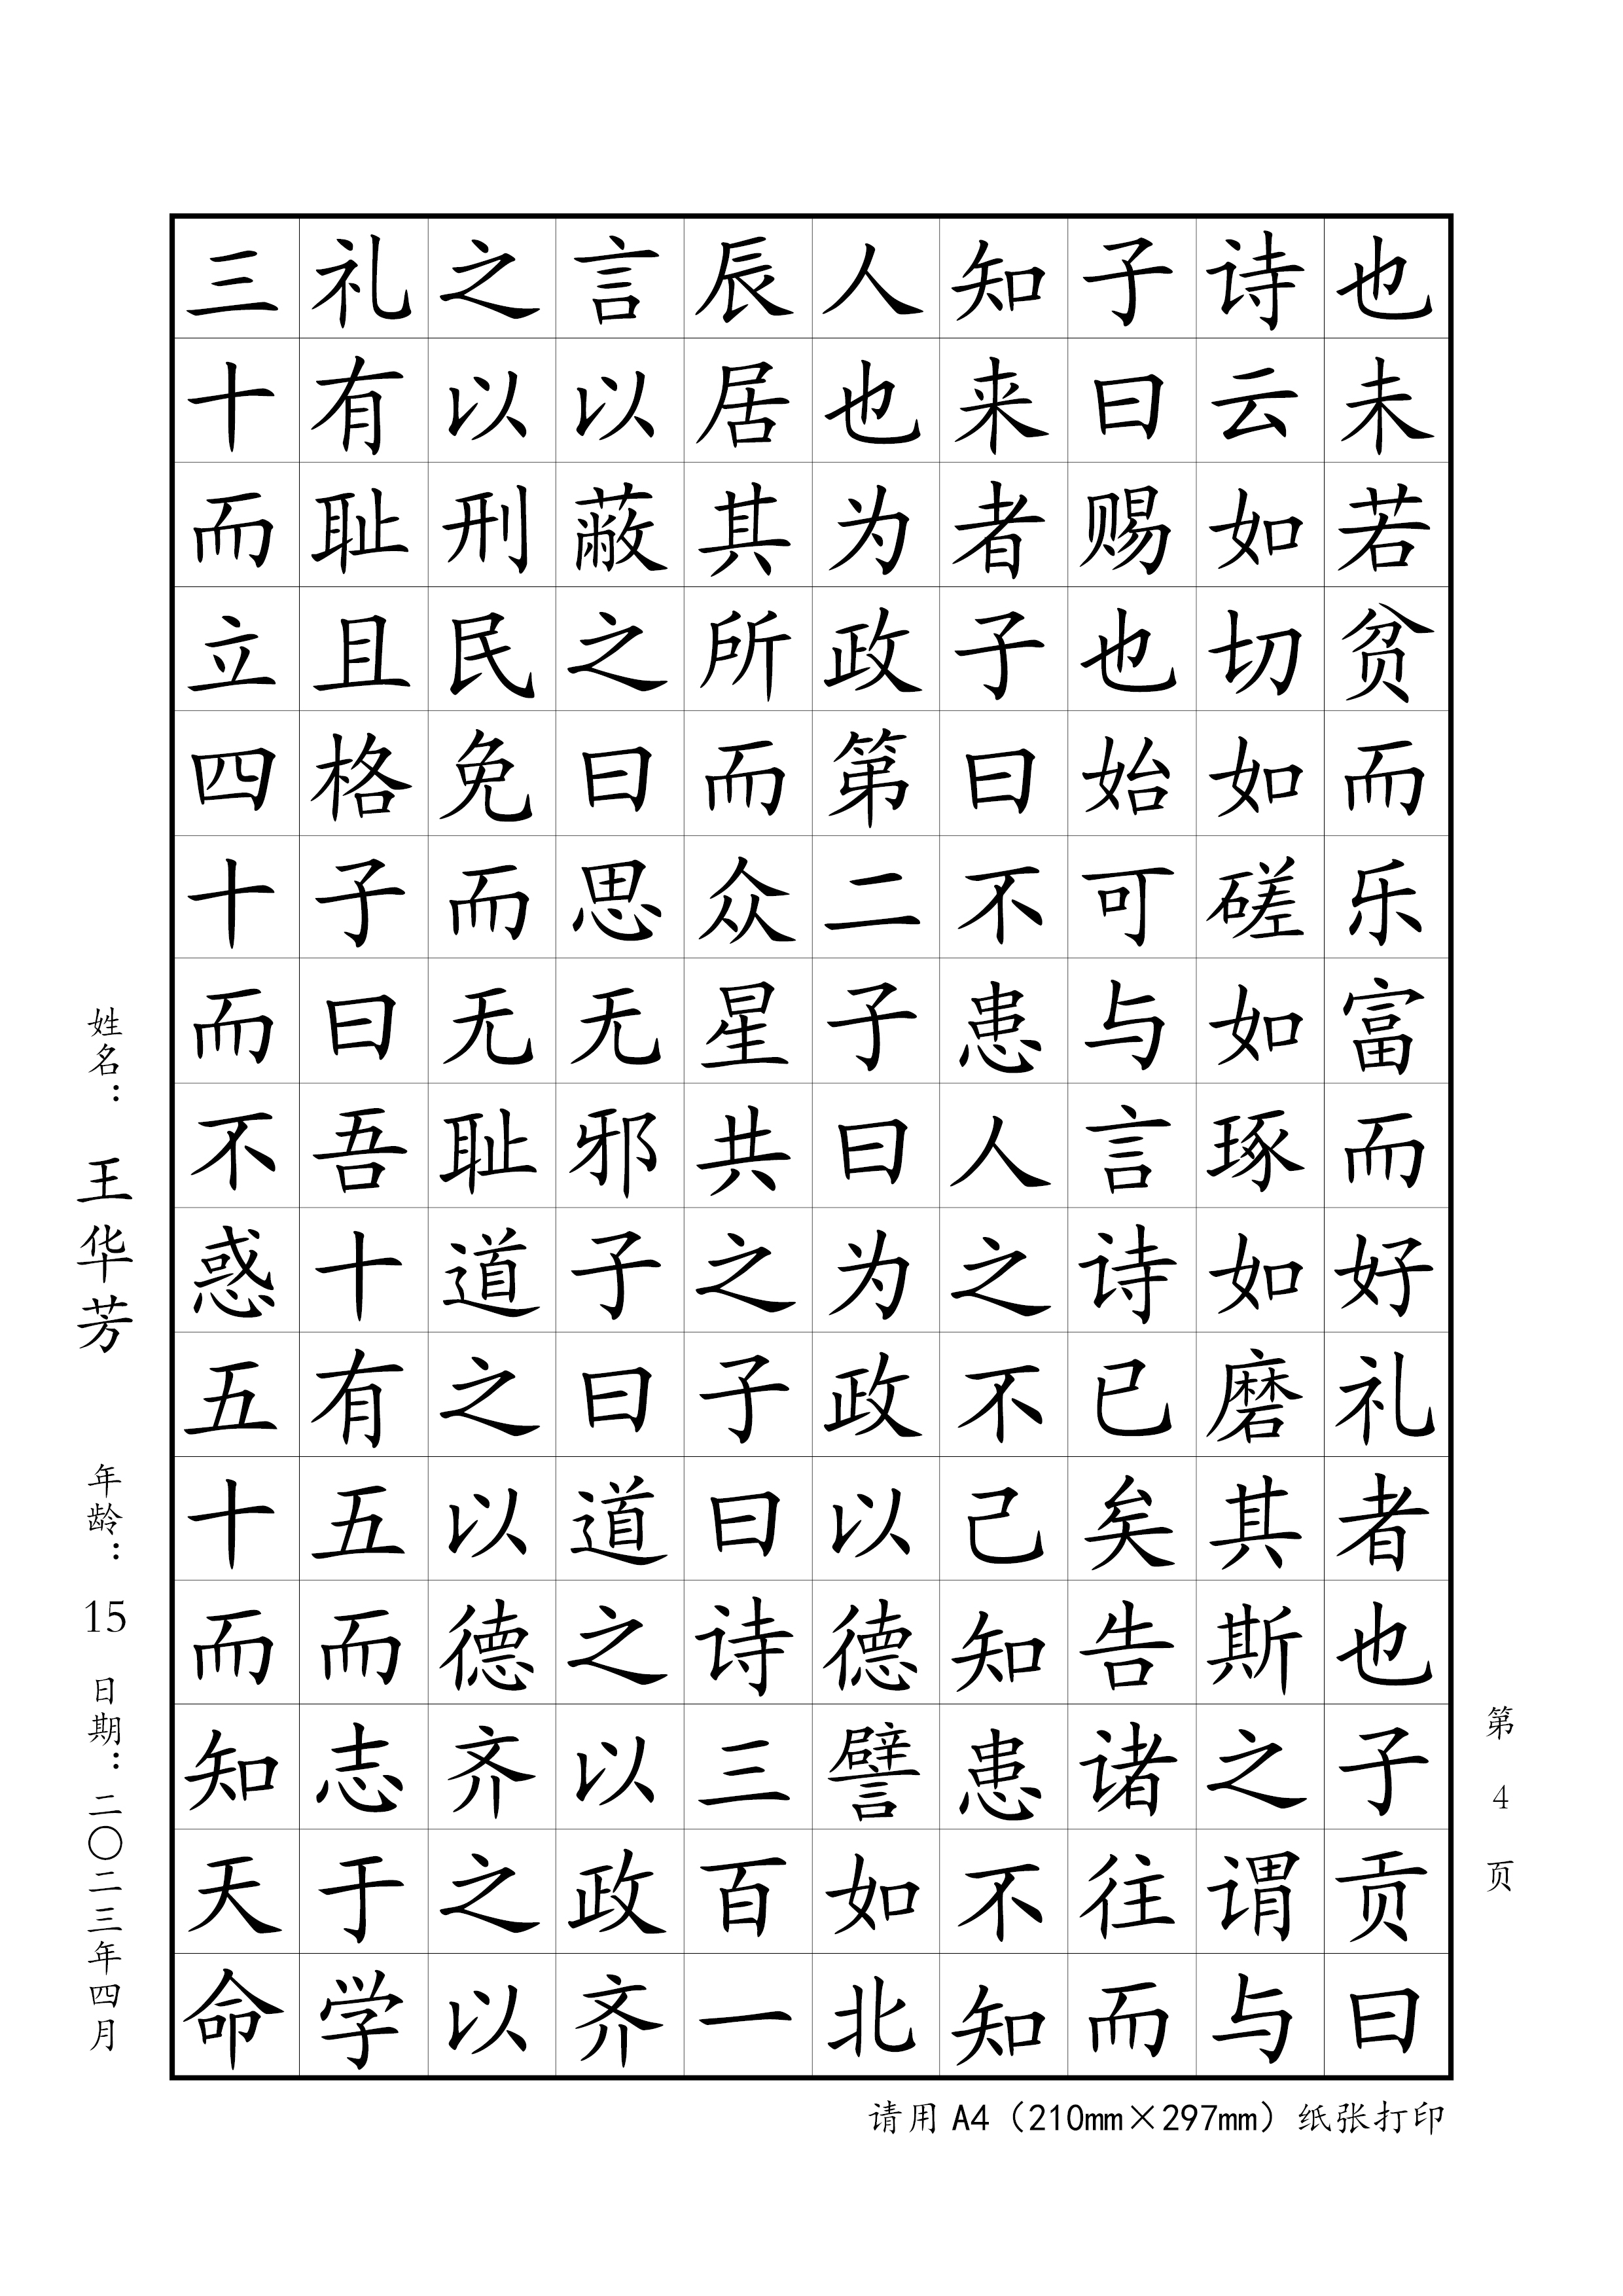 也未若贫而乐富而好礼者也子贡曰
诗云如切如磋如琢如磨其斯之谓与
子曰赐也始可与言诗已矣告诸往而
知来者子曰不患人之不己知患不知
人也为政第二子曰为政以德譬如北
辰居其所而众星共之子曰诗三百一
言以蔽之曰思无邪子曰道之以政齐
之以刑民免而无耻道之以德齐之以
礼有耻且格子曰吾十有五而志于学
三十而立四十而不惑五十而知天命
姓名： 王华芳 年龄： 15 日期：二〇二三年四月
第 4 页
请用 A4（210mm×297mm）纸张打印